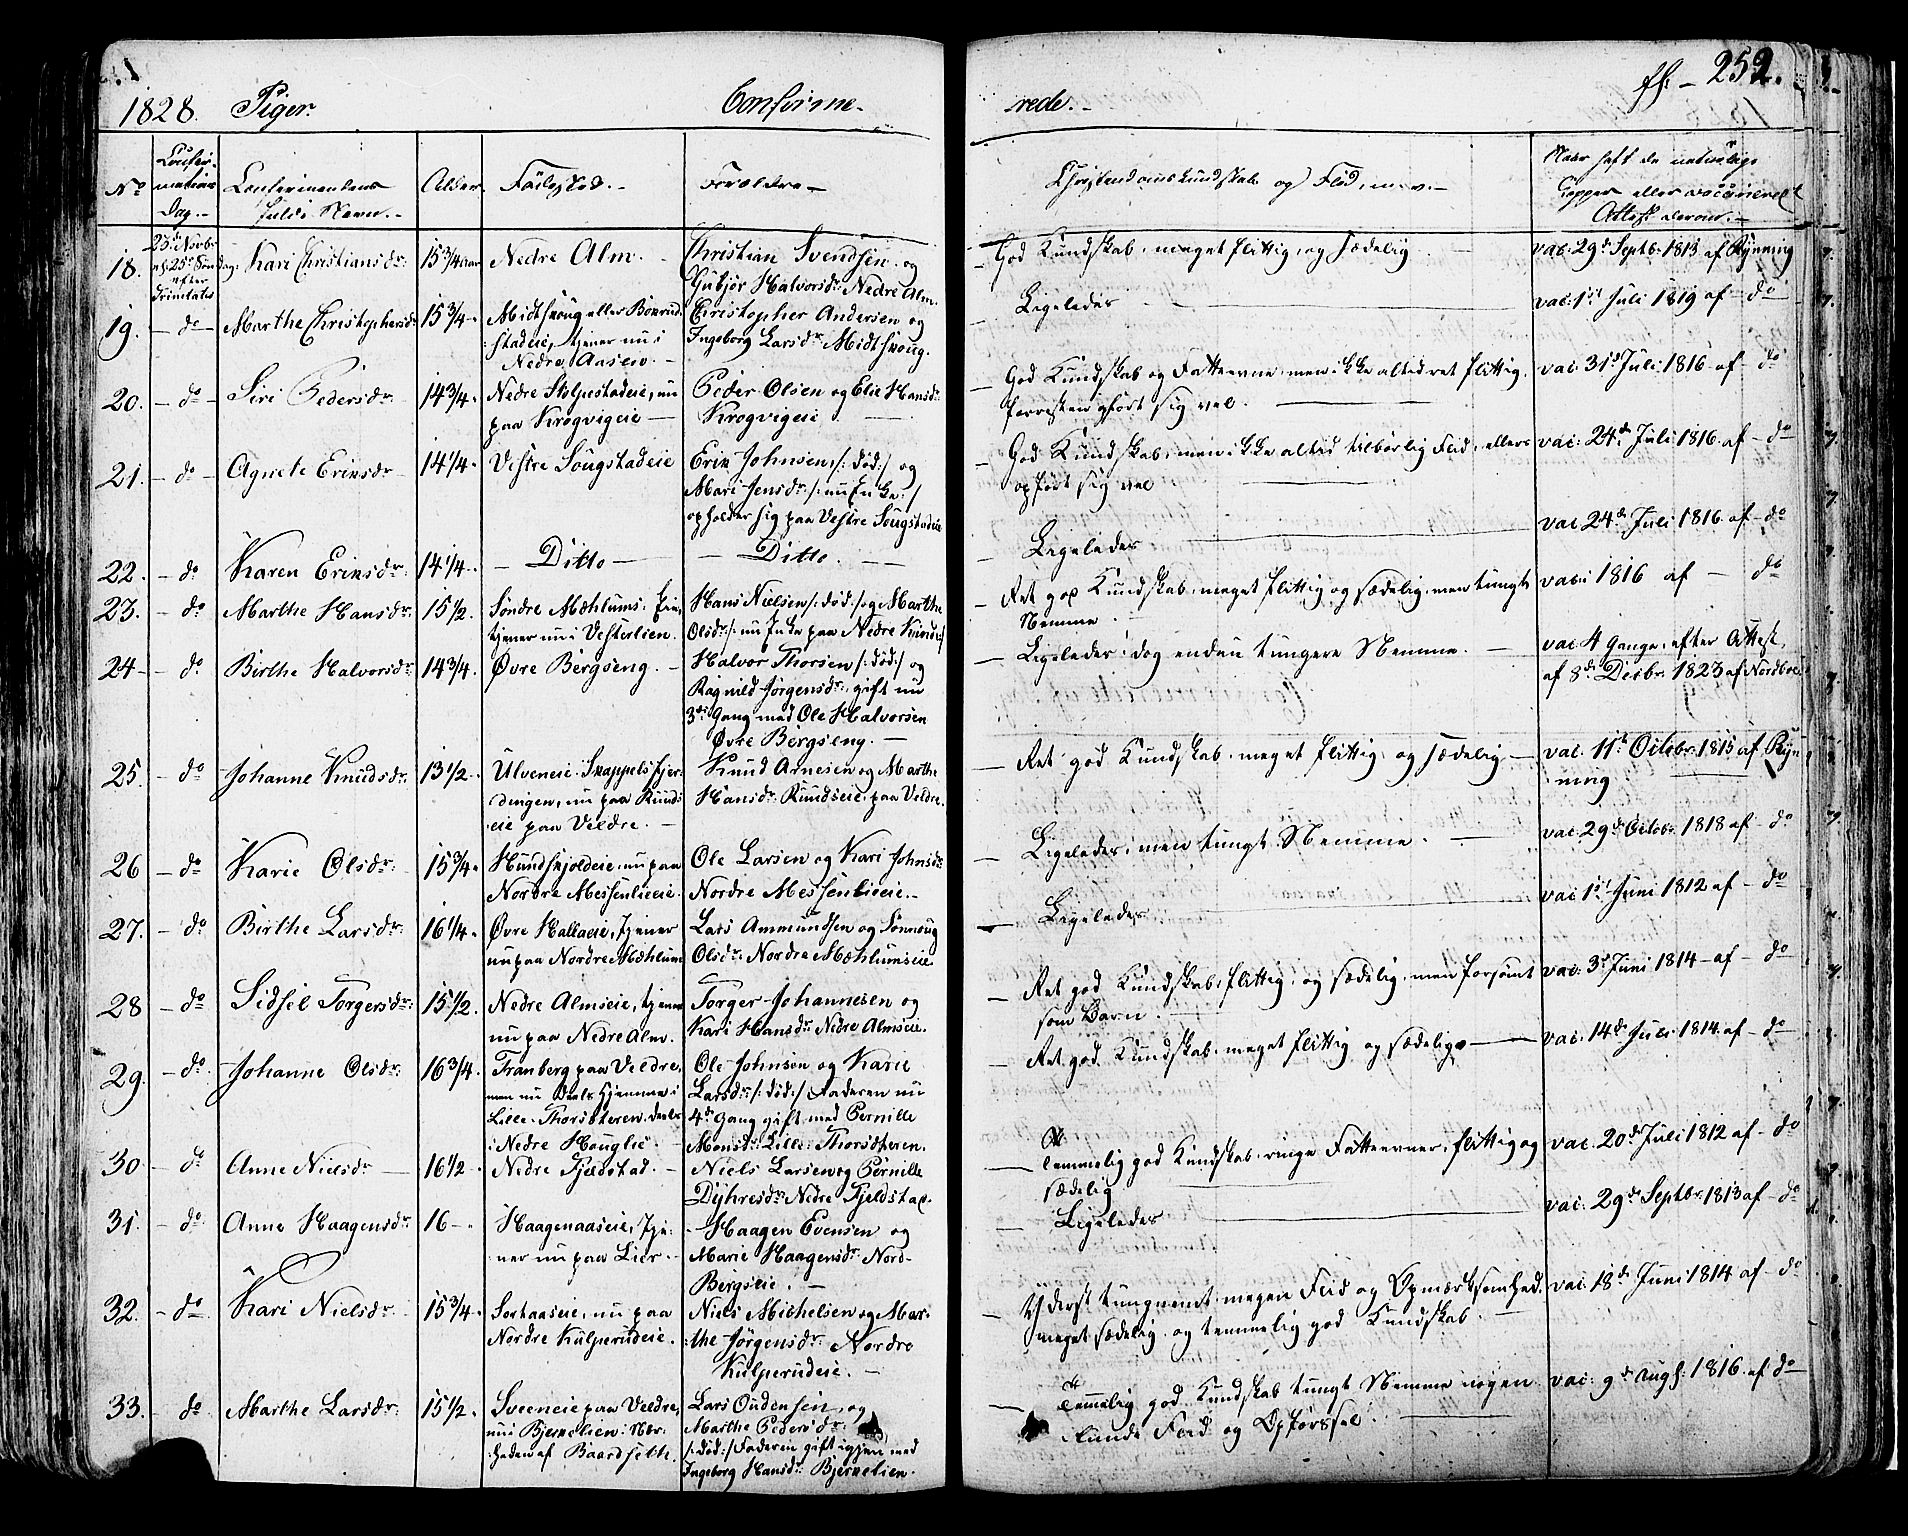 ff. - 252.
1828. Piger. Confirme- rede.
No
Confir-
mations
Dag.
Confirmandens
fulde Navn.
Alder
Födested.
Forældre
Christendomskundskab og Flid, m.v.
Naar haft de naturlige
Kopper eller vaccineret
Attest derom.
18. 23de Novbr. Kari Christiansdr. 15 3/4 Aar Nedre Alm. Christian Svendsen og
25de Søndag
efter
Trinitatis
Gubjør Halvorsdr. Nedre Alm.
God Kundskab, meget flittig, og sædelig. vac. 29de Septbr. 1813 af Rynning
19. - do - Marthe Christophersdr. 15 3/4 Midtskoug eller Christopher Andersen og
stadeie, tjener nu i Ingeborg Larsdr. Midtskoug.
Nedre Aasen.
Ligeledes vac. 1st Juli 1819 af - do
20. - do - Siri Pedersdr. 14 3/4 Nedre Stigestadeie, nu Peder Olsen og Elie Hansdr.
paa Krogvigeie Krogvigeie
God Kundskab og Fatteevne, men ikke altid ret flittig, vac. 31s Juli 1816 af - do
forresten opført sig vel.
21. - do - Agnete Ericsdr. 14 1/4 Vestre Sougstadeie Eric Johnsen /: död :/ og
Mari Jensdr. /: nu Enke :/
opholder sig paa Vestre Sougstadeie
God Kundskab, men ikke altid tilbørlig Flid, ellers vac. 24de Juli 1816. af - do
opført sig vel
22. - do - Karen Ericsdr. 14 1/4 - Ditto - - Ditto. -
Ligeledes vac. 24de Juli 1816. af - do
23. - do Marthe Hansdr. 15 1/2 Søndre Mæhlums Eie, Hans Nielsen /: död :/ og Marthe
tjener nu i Vesterlien. Olsdr. /: nu Enke paa Nedre
Ret god Kundskab, meget flittig og sædelig, men tungt 1816 af - do
Nemme.
24 - do - Birthe Halvorsdr. 14 3/4 Øvre Bergseng. Halvor Thorsen /: död :/ og
Ragnild Jørgensdr. gift nu
3die Gang med Ole Halvorsen
Øvre Bergseng.
Ligeledes, dog endnu tungere Nemme. vac 4 Gange, efter Attest,
af 8de Decbr. 1823 af Nordboe
25. - do Johanne Knudsdr. 13 1/2 Ulveneie i Skappelsfjer- Knud Arnesen og Marthe
dingen, nu paa Runds- Hansdr. Rundseie paa Veldre.
eie paa Veldre.
Ret god Kundskab, meget flittig og sædelig vac. 11te Octobr. 1815 af Ryn-
ning
26 - do Karie Olsdr. 15 3/4 Hundskjoldeie, nu paa Ole Larsen og Kari Johnsdr.
Nordre Messenlieeie. Nordre Messenlieeie.
Ligeledes, men tungt Nemme. vac. 29de Octobr. 1818 af - do
27. - do Birthe Larsdr. 16 1/4 Øvre Hallaeie, tjener Lars Ammundsen og Sønnoug
nu paa Nordre Mæhlum Olsdr. Nordre Mæhlumseie.
Ligeledes vac 1st Juni 1812 af - do
28 - do Sidsel Torgersdr. 15 1/2. Nedre Almseie, tjener Torger Johannesen og
nu paa Nedre Alm. Kari Hansdr. Nedre Almseie.
Ret god Kundskab, flittig og sædelig, men forsömt vac. 3d Juni 1814 - af - do
som Barn.
29. - do Johanne Olsdr. 16 3/4. Tranberg paa Veldre, Ole Johnsen og Karie
men nu deels hjemme i Larsdr. /: död :/ Faderen nu
Lille Thorsteren, deels 4de Gang gift med Pernille
i Nedre Houglie. Monsdr. Lille Thorsteren.
Ret god Kundskab, meget flittig og sædelig. vac. 14de Juli 1814. af - do
30. - do Anne Nielsdr. 16 1/2 Nedre Fjeldstad. Niels Larsen og Pernille
Dyhresdr. Nedre Fjeldstad.
temmelig god Kundskab, ringe Fatteevner, flittig og vac. 20de Juli 1812 af - do
sædelig
31. - do Anne Haagensdr. 16 - Haagenaaseie, tje- Haagen Evensen og
ner nu paa Lier. Marie Haagensdr. Nord-
Bergseie.
Ligeledes vac: 29de Septbr. 1813 af - do
32. - do Kari Nielsdr. 15 3/4 Sorkaaseie, nu paa Niels Michelsen og Mar-
Nordre Kulperudeie. the Jørgensdr. Nordre
Kulperudeie.
Yderst tungnemt, megen Flid og Opmærksomhed, vac. 18de Juni 1814 af - do
meget sædelig og temmelig god Kundskab.
33. - do Marthe Larsdr. 15 1/2 Sveeneie paa Veldre, Lars Oudensen, og
nu i Bjernelien i Nær- Marthe Pedersdr.
heden af Baardseth. /: död :/ Faderen gift igjen med
Ingeborg Hansdr. Bjernelien.
Temmelig god Kundskab, tungt Nemme, nogen- vac. 9de Augst: 1816 af do
lunde Flid og Opførssel.